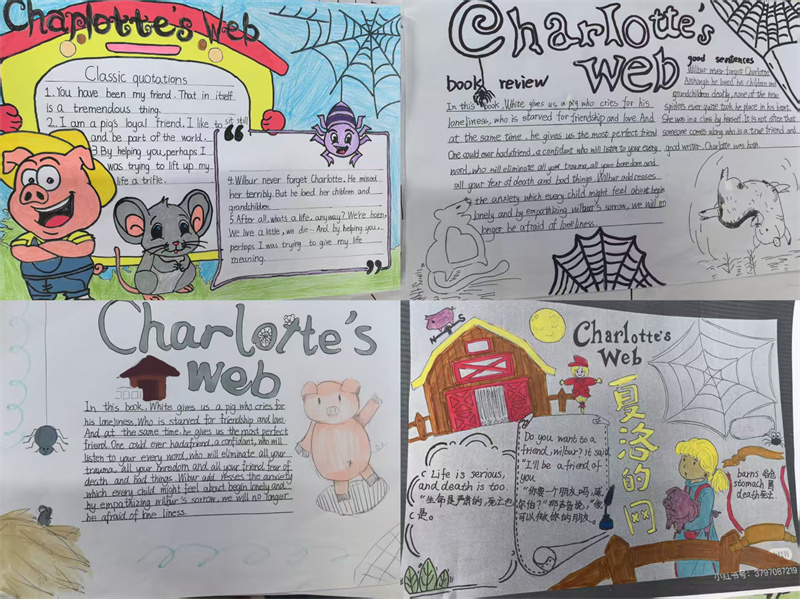 Charlotte's Web
Classic quotations
1. You have been my friend. That in itself
is a tremendous thing.
2. I am a pig's loyal friend. I like to sit still
and be part of the world.
3. By helping you, perhaps I
was trying to lift up my
life a trifle.
“
4. Wilbur never forget Charlotte. He missed
her terribly. But he
her children and
grandchildren.
5. After all, what's a life, anyway? We're been,
We live a little, we die— And by helping you,
perhaps I was trying to give my life
meaning.
”
Charlotte's
Web
book review
In this book, White gives us a pig who cries for his
loneliness, who is starved for friendship and love. And
at the same time, he gives us the most perfect friend
One could ever hadafriend, a confidant, who will listen to your every
word, who will eliminate all your trauma, all your boredom and
all your fear of death and bad things. Wilbur addresses
the anxiety which every child might feel about begin
lonely and by empathizing wilbur's sorrow, we will no
longer be afraid of loneliness.
good sentences
Wilbur never forget Charlotte
Although he loved he children and
grandchildren dearly, none of the new
spiders ever quite took he place in his heart.
She was in a class by herself. It is not often that
someone comes along who is a true friend and
good writer. Charlotte was both.
Charlotte's
Web
In this book, White gives us a pig who cries for
his loneliness, Who is starved for friendship and love
And at the same time, he gives us the most perfect
friend. One could ever hadafriend, a confidant, who will
listen to your every word, who will eliminate all your
trauma, all your boredom and all your friend fear of
death and bad things. Wilbur addresses the anxiety
which every child might feel about begin lonely and
by empathizing wilbur's sorrow, we will no longer
be afraid of lone liness.
Charlotte's
Web
夏洛的网
C Life is serious,
and death is too.
“生命是严肃的,死亡也
C是。
Do you want to a
friend, wilbur? it said.
“I'll be a friend of
you
“你要一个朋友吗,威
尔伯?”那声音说,“我
可以做你的朋友。
barns 谷仓
stomach 胃
death 死亡
小红书号: 3797087219